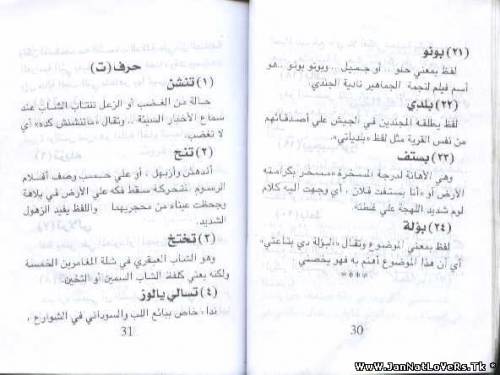 (٢١) بونو
لفظ بمعني حلو .. أو جميل .. وبونو بونو .. هو
أسم فيلم لنجمة الجماهير نادية الجندي.
(٢٢) بلدي
لفظ يطلقه المجندين في الجيش علي أصدقائهم
من نفس القرية مثل لفظ «بلدياتي».
(٢٣) بستف
وهي الأهانة لدرجة المسخرة «مسخر بكرامته
الأرض أو «أنا بستفت فلان ، أي وجهت إليه كلام
لوم شديد اللهجة علي غلطته.
(٢٤) بؤلة
لفظ بمعني الموضوع وتقال «البؤلة دي بتاعتي»
أي أن هذا الموضوع أهتم به فهو يخصني
****
30
حرف (ت)
(١) تنشن
حالة من الغضب أو الزعل تنتاب الشاب عند
سماع الأخبار السيئة .. وتقال «ماتنشنش كده» أي
لا تغضب.
(٢) تنح
أندهش وأزبهل ، أو علي حسب وصف أفلام
الرسوم المتحركة سقط فكه علي الأرض في بلاهة
وجحظت عيناه من محجريهما واللفظ يفيد الزهول
الشديد.
(٣) تختخ
وهو الشاب العبقري في شلة المغامرين الخمسة
ولكنه يعني كلفظ الشاب السمين أو التخين.
(٤) تسالي يالوز
نداء خاص ببائع اللب والسوداني في الشوارع ،
31
WwW.JanNatLoVeRs.Tk ®